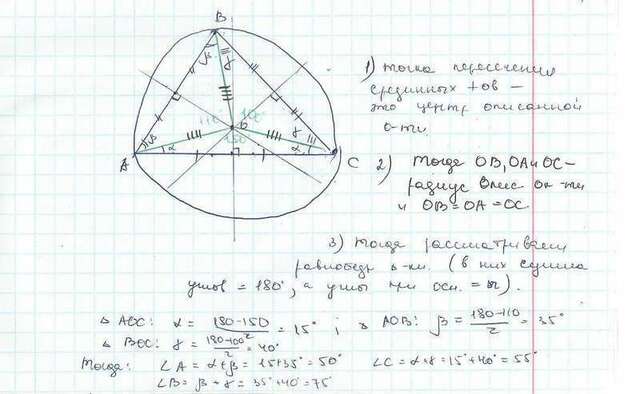 B
β γ
110° 100°
O
150°
β
α
A
γ
α
C
1) точка пересечения
срединных ⊥ов –
это центр описанной
о-ти.
2) Тогда OB, OA и OC –
радиус опис ок-ти
и OB = OA = OC
3) Тогда рассматриваем
равнобедр Δ-ки. (в них сумма
углов = 180°, а углы при осн. = ы).
Δ AOC: α = (180-150)/2 = 15° ; Δ AOB: β = (180-110)/2 = 35°
Δ BOC: γ = (180-100)/2 = 40°
Тогда: ∠A = α+β = 15+35° = 50° ∠C = α+γ = 15°+40° = 55°
∠B = β+γ = 35°+40° = 75°